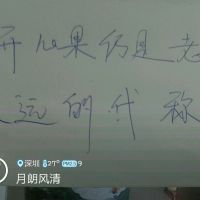 开心果仍是老
远的代称
深圳 27° PM2.5 9
月朗风清